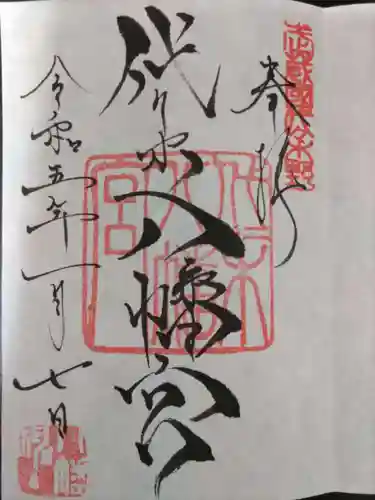 奉拝
代々木八幡宮
令和五年一月七日
代々木八幡宮